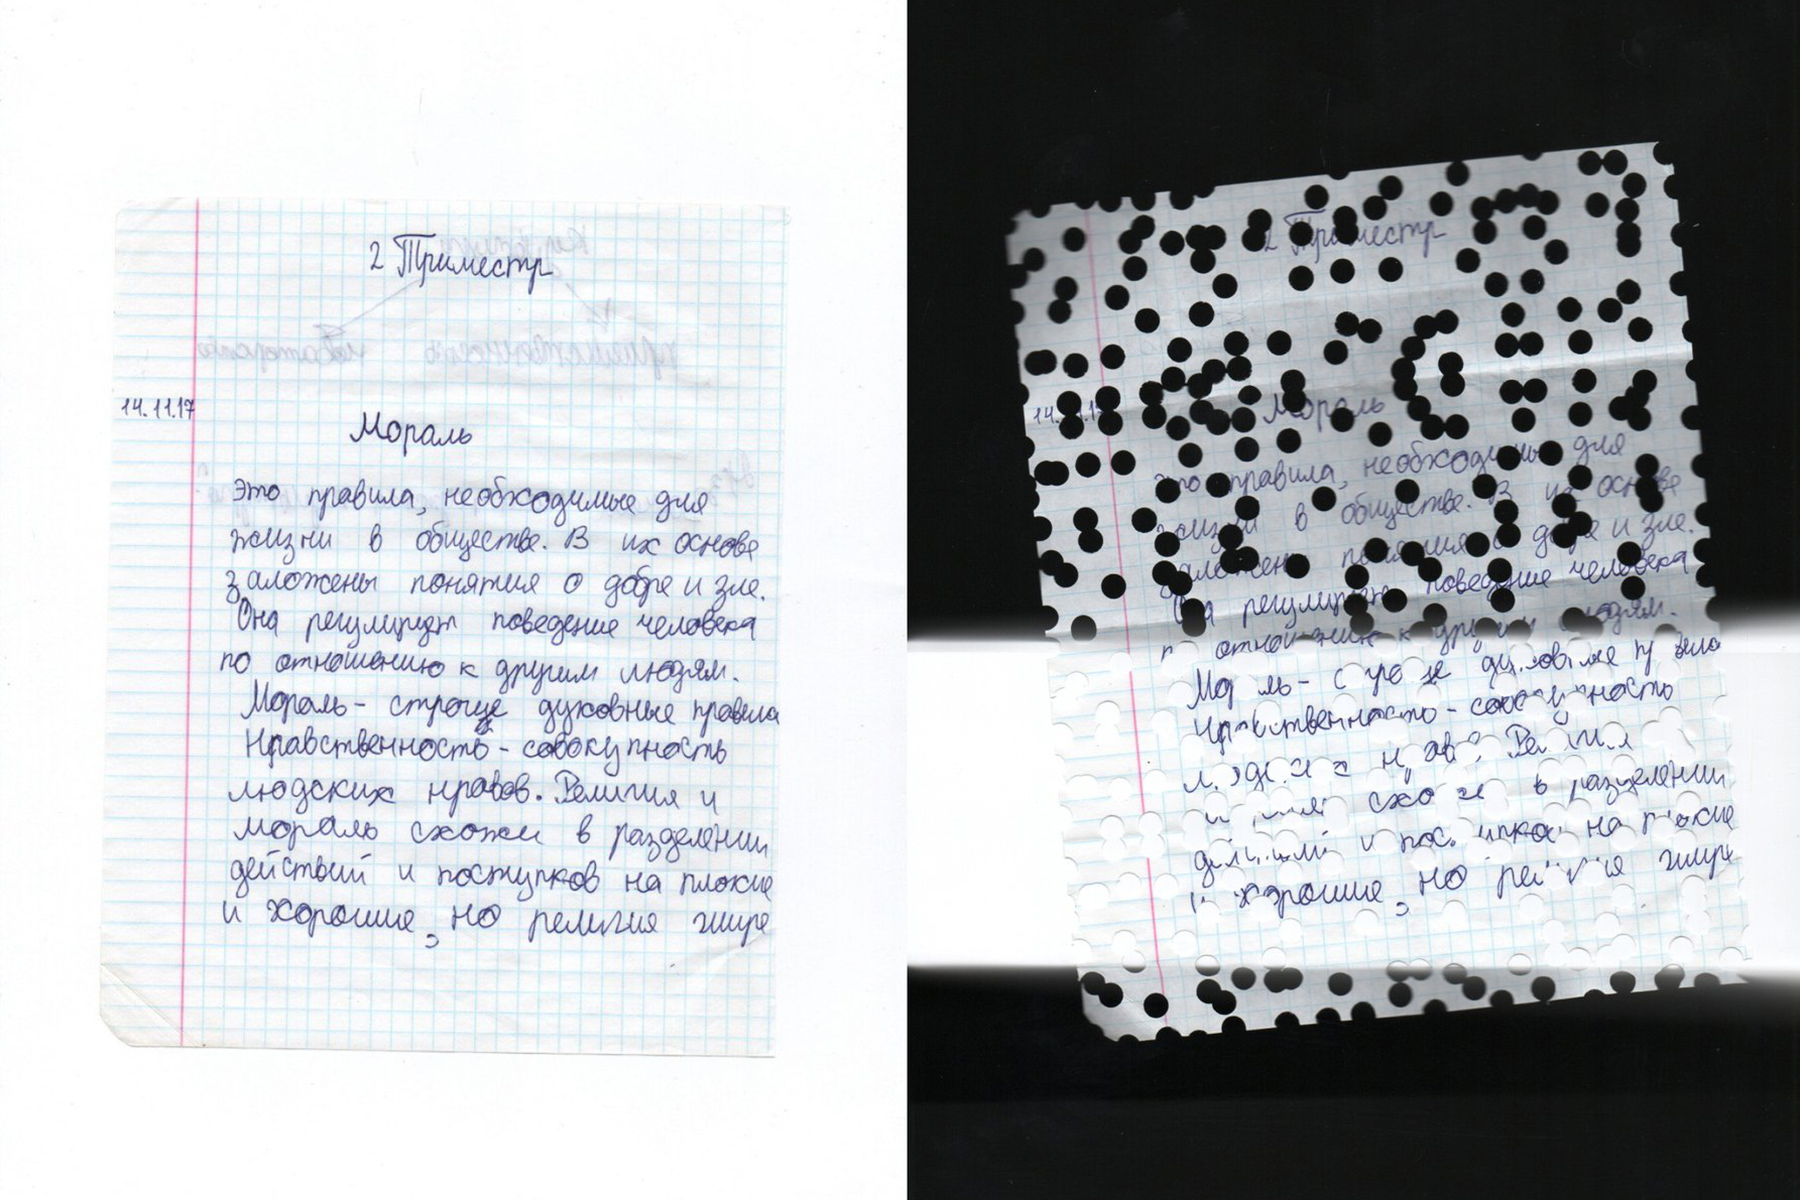 2 Триместр
14.11.17
Мораль
Это правила, необходимые для
жизни в обществе. В их основе
заложены понятия о добре и зле.
Она регулирует поведение человека
по отношению к другим людям.
Мораль - строгие духовные правила
Нравственность - совокупность
людских нравов. Религия и
мораль схожи в разделении
действий и поступков на плохие
и хорошие, но религия шире
2 Триместр
14.11.17
Мораль
Это правила, необходимые для
жизни в обществе. В их основе
заложены понятия о добре и зле.
Она регулирует поведение человека
по отношению к другим людям.
Мораль - строгие духовные правила
Нравственность - совокупность
людских нравов. Религия
мораль схожи в разделении
действий и поступков на плохие
и хорошие, но религия шире